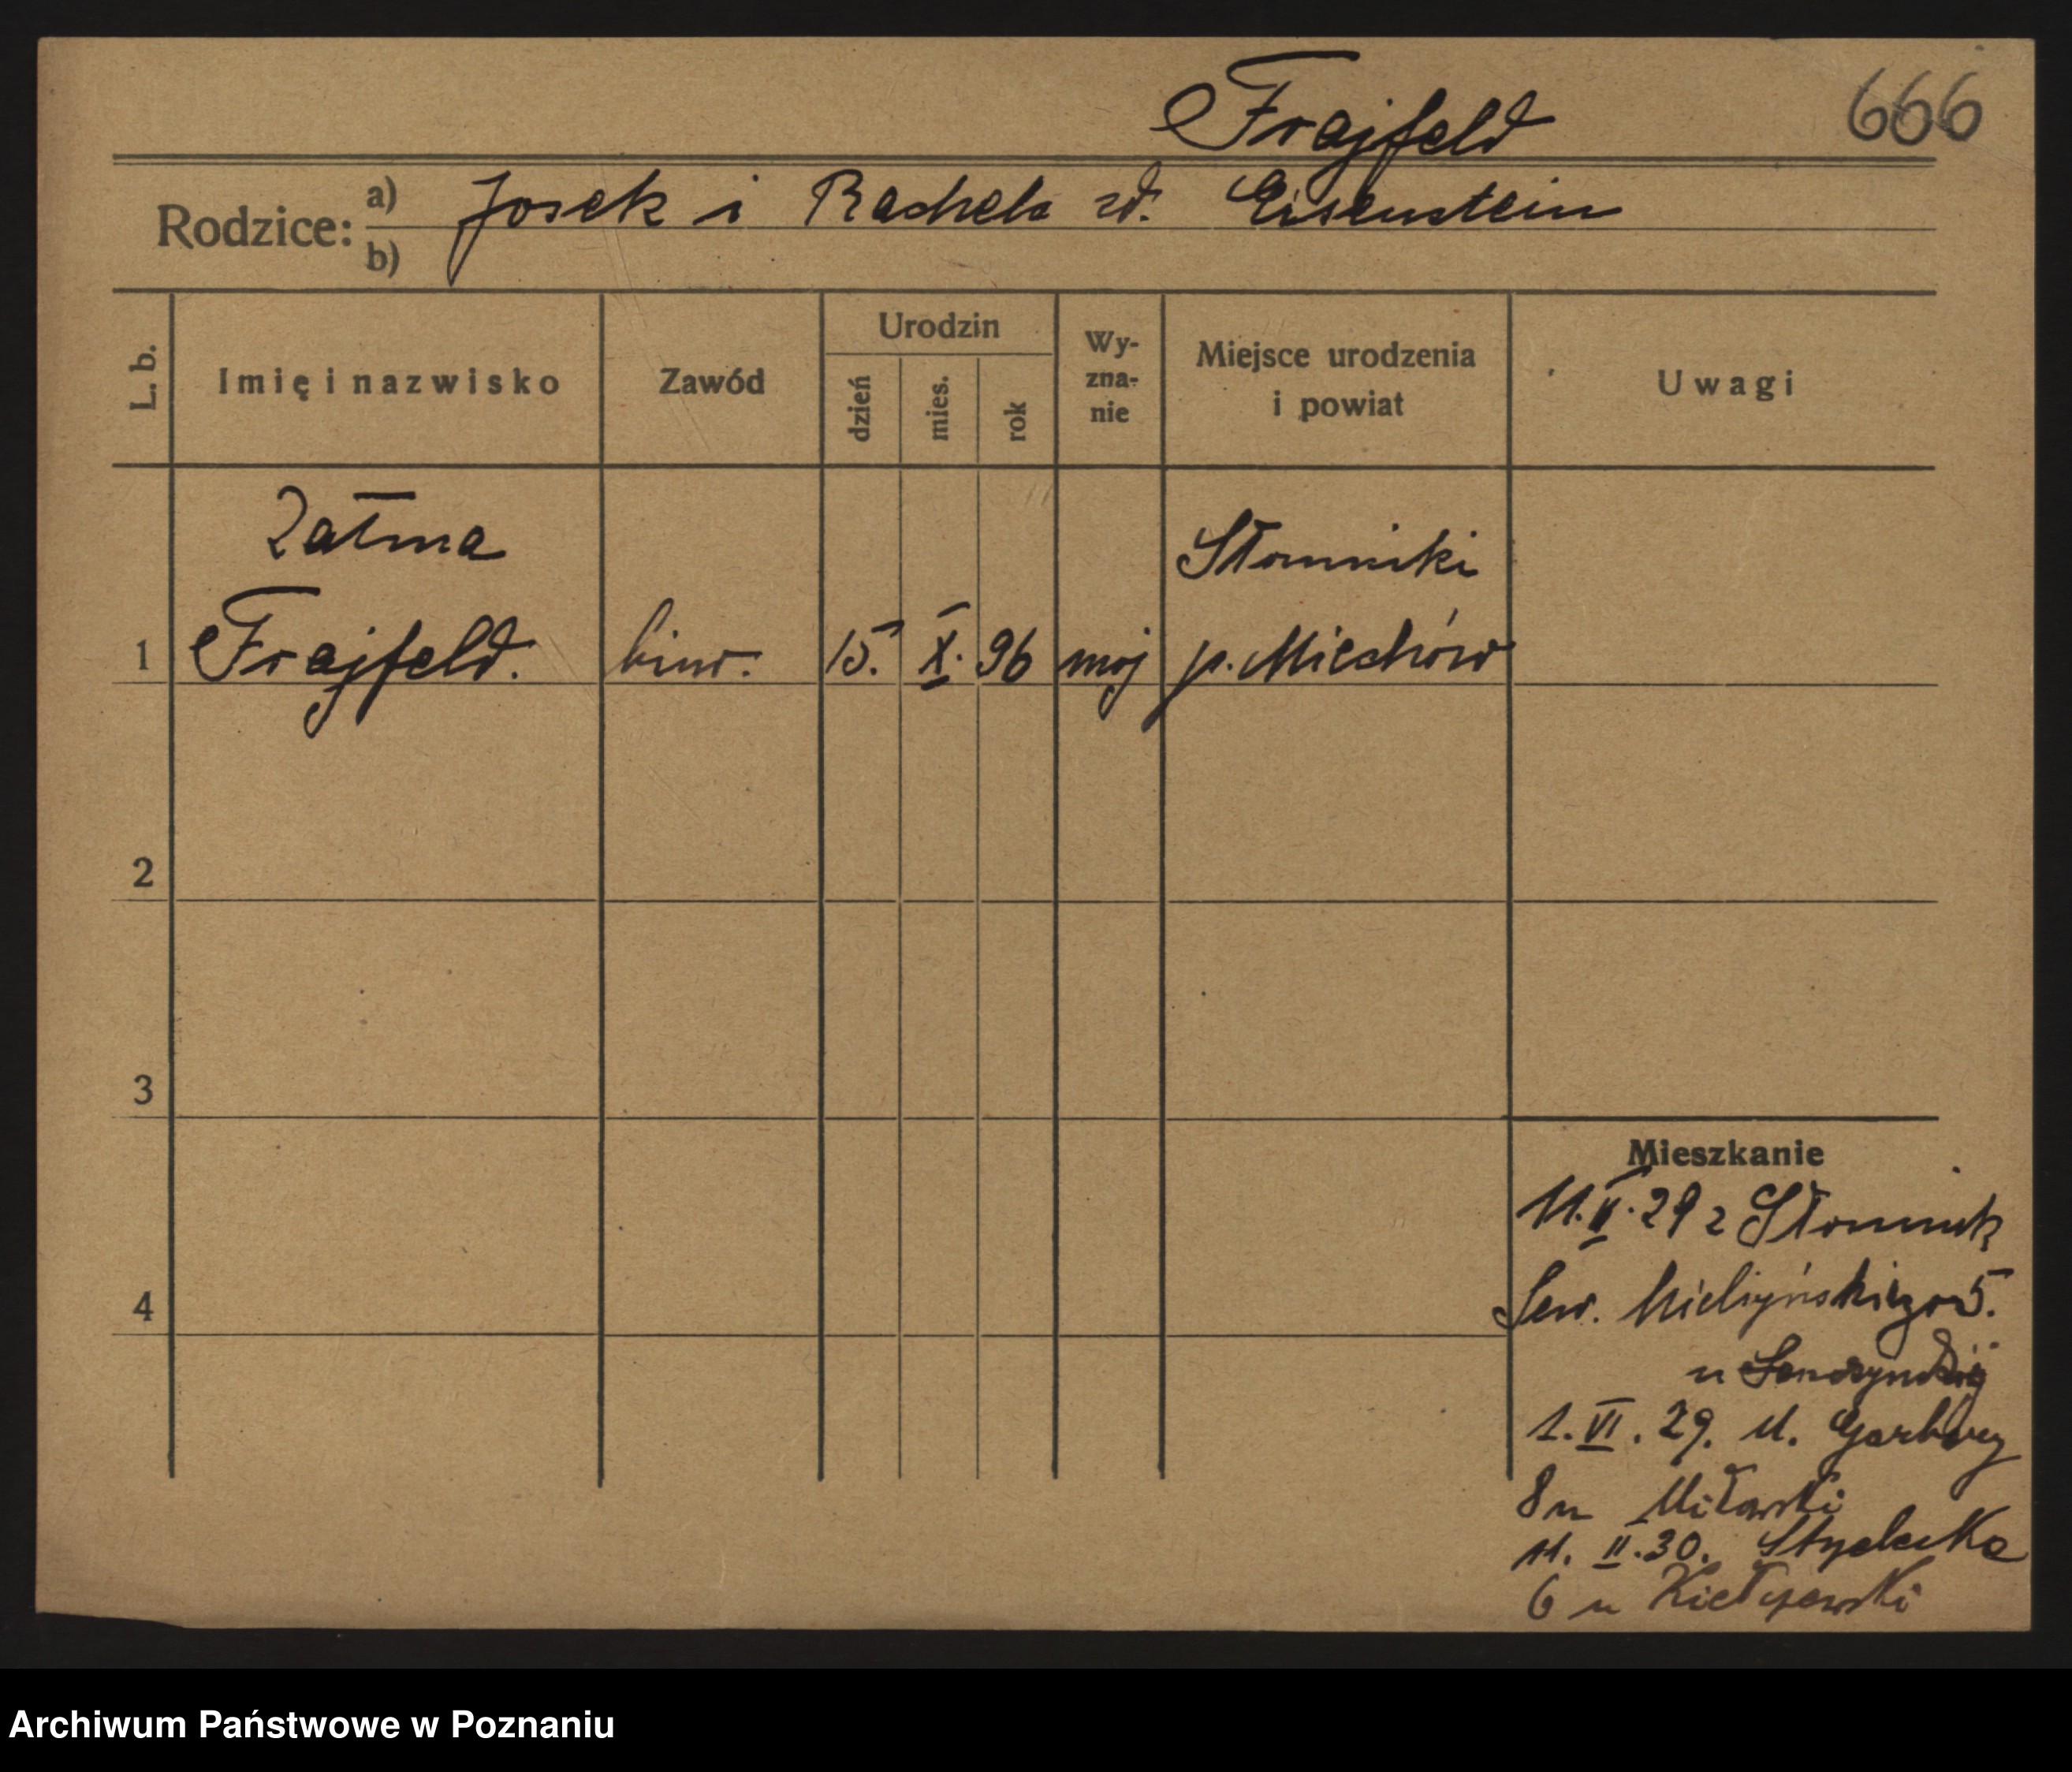 Frajfeld
666
Rodzice: a) Josek i Rachela zd. Eisenstein
b)
L. b.
Imię i nazwisko
Zawód
Urodzin
dzień
mies.
rok
Wy-
zna-
nie
Miejsce urodzenia
i powiat
Uwagi
Załma
Słomniki
1 Frajfeld. biur. 15. X. 96 moj p. Miechów
2
3
Mieszkanie
11. II. 29 z Słomnik
4
Sew. Mielżyńskiego 5.
u
1. VI. 29. Garbary
8 u
11. II. 30. Strzelecka
6 u Kiełczewski
Archiwum Państwowe w Poznaniu